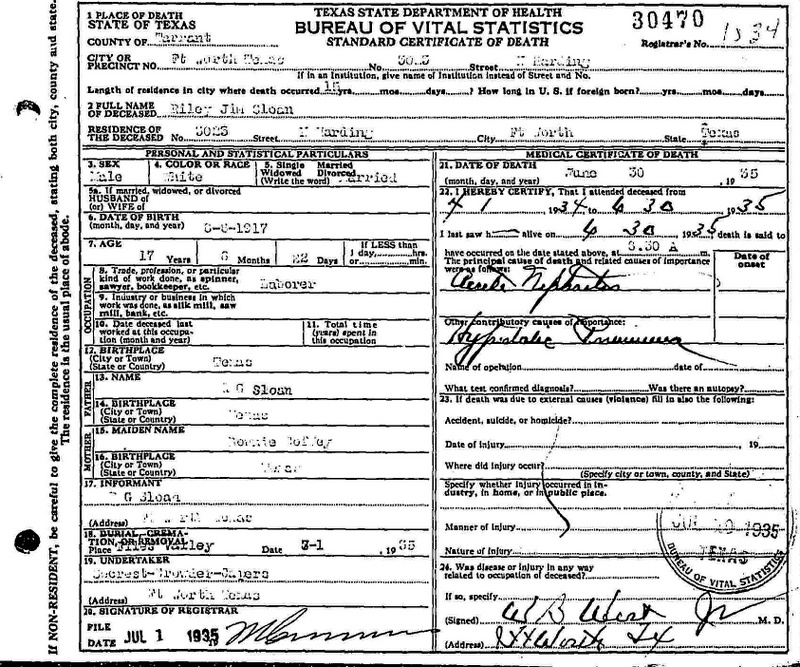 If NON-RESIDENT, be careful to give the complete residence of the deceased, stating both city, county and state.
The residence is the usual place of abode.
TEXAS STATE DEPARTMENT OF HEALTH
BUREAU OF VITAL STATISTICS
STANDARD CERTIFICATE OF DEATH
30470
Registrar's No. 1534
1 PLACE OF DEATH
STATE OF TEXAS
COUNTY OF Tarrant
CITY OR PRECINCT NO. Ft Worth Texas No. 3023 Street N Harding
If in an Institution, give name of Institution instead of Street and No.
Length of residence in city where death occurred 15 yrs. mos. days. ? How long in U. S. if foreign born? yrs. mos. days
2 FULL NAME OF DECEASED Riley Jim Sloan
RESIDENCE OF THE DECEASED No. 3023 Street N Harding City Ft Worth State Texas
PERSONAL AND STATISTICAL PARTICULARS
3. SEX Male
4. COLOR OR RACE White
5. Single Married Widowed Divorced (Write the word) Married
5a. If married, widowed, or divorced
HUSBAND of
(or) WIFE of
6. DATE OF BIRTH
(month, day, and year) -1917
7. AGE 17 Years Months 22 Days
If LESS than 1 day, hrs. or min.
OCCUPATION
8. Trade, profession, or particular kind of work done, as spinner, sawyer, bookkeeper, etc. Laborer
9. Industry or business in which work was done, as silk mill, saw mill, bank, etc.
10. Date deceased last worked at this occupation (month and year)
11. Total time (years) spent in this occupation
12. BIRTHPLACE
(City or Town)
(State or Country) Texas
FATHER
13. NAME G Sloan
14. BIRTHPLACE
(City or Town)
(State or Country) Texas
MOTHER
15. MAIDEN NAME Coffey
16. BIRTHPLACE
(City or Town)
(State or Country)
17. INFORMANT G Sloan
(Address) Ft Worth Texas
18. BURIAL, CREMATION, OR REMOVAL
Place Valley Date -1, 1935
19. UNDERTAKER
Ft Worth Texas
20. SIGNATURE OF REGISTRAR
FILE DATE JUL 1 1935
MEDICAL CERTIFICATE OF DEATH
21. DATE OF DEATH
(month, day, and year) June 30, 1935
22. I HEREBY CERTIFY, That I attended deceased from
4 1 1934 to 6 30 1935
I last saw h alive on 6 30 1935 death is said to
have occurred on the date stated above, at 8.30 A m.
The principal cause of death and related causes of importance were as follows:
Date of onset
Other contributory causes of importance:
Name of operation date of
What test confirmed diagnosis? Was there an autopsy?
23. If death was due to external causes (violence) fill in also the following:
Accident, suicide, or homicide?
Date of injury 19
Where did injury occur?
(Specify city or town, county, and State)
Specify whether injury occurred in industry, in home, or in public place.
Manner of injury
Nature of injury
1935
TEXAS
BUREAU OF VITAL STATISTICS
24. Was disease or injury in any way related to occupation of deceased?
If so, specify
(Signed) W B West Jr M. D.
(Address) Ft Worth Tx